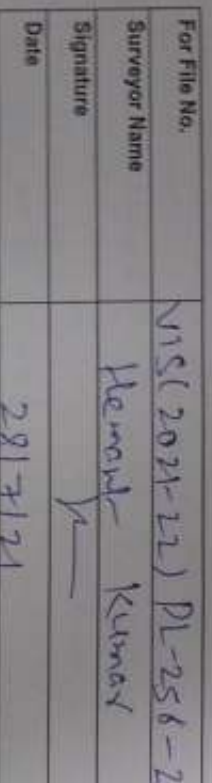 For File No. VIS(2021-22) PL-256-2
Surveyor Name Hemant Kumar
Signature
Date 28/7/21